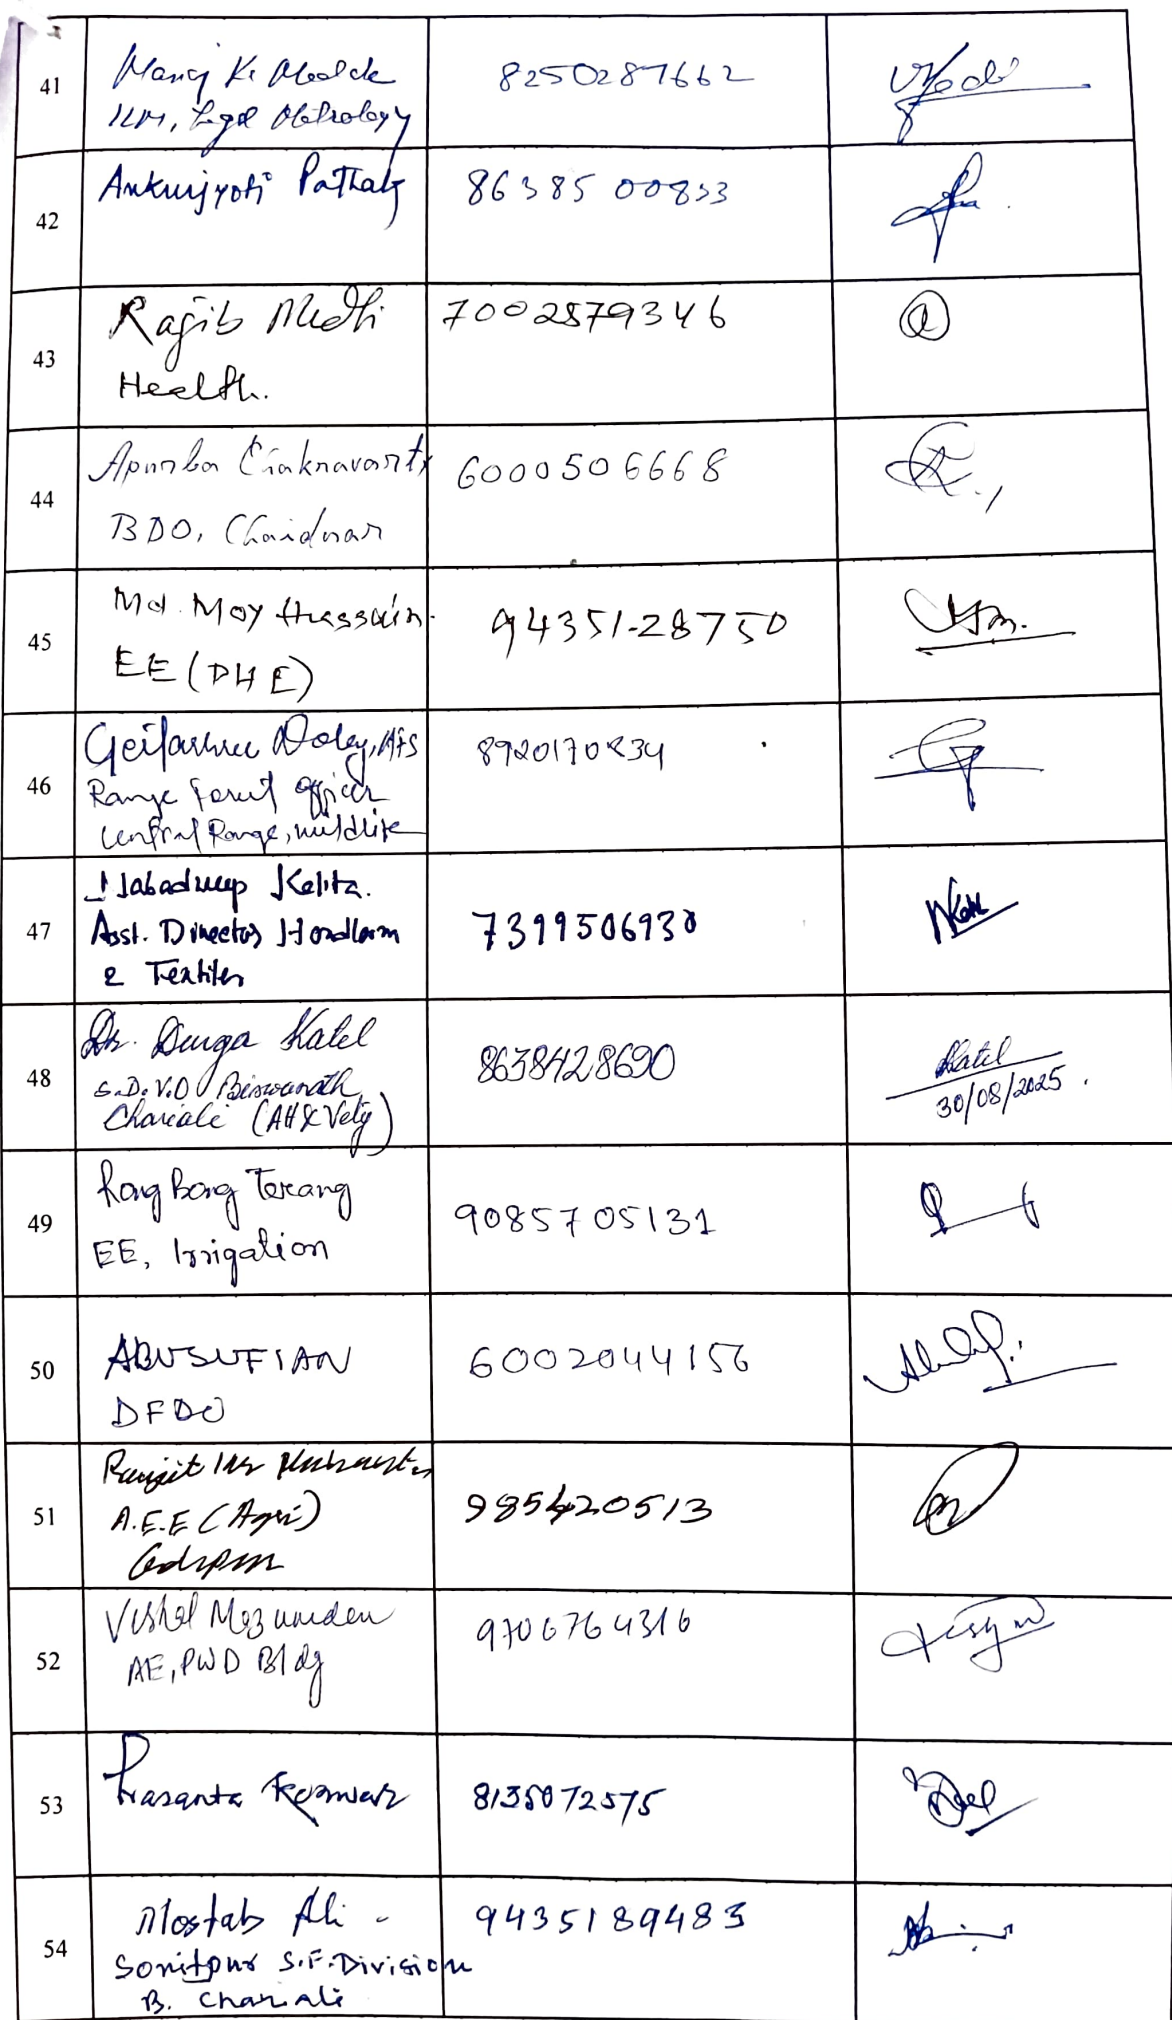 41
Manoj Kr
ILM, Legal Metrology
8250287662
42
Ankurjyoti Pathak
8638500833
43
Rajib Medhi
Health.
7002579346
44
Apurba Chakravarty
BDO, Chaiduar
6000506668
45
Md. Moy Hussain.
EE (PHE)
94351-28750
46
Doley, AFS
Range Forest Officer
Central Range, wildlife
8920170834
47
Nabadweep Kalita.
Asst. Director Handloom
& Textiles
7399506930
48
Dr. Durga Katel
S.D.V.O Biswanath
Chariali (AH & Vety)
8638428690
Katel
30/08/2025.
49
Rong Bong Terang
EE, Irrigation
9085705131
50
ABUSUFIAN
DFDO
6002044156
51
Ranjit
A.E.E (Agri)
985420513
52
Vishal Mozumder
AE, PWD Bldg
9706764316
53
Prasanta Keonwar
8135072575
54
Mostab Ali -
Sonitpur S.F. Division
B. Chariali
9435189483